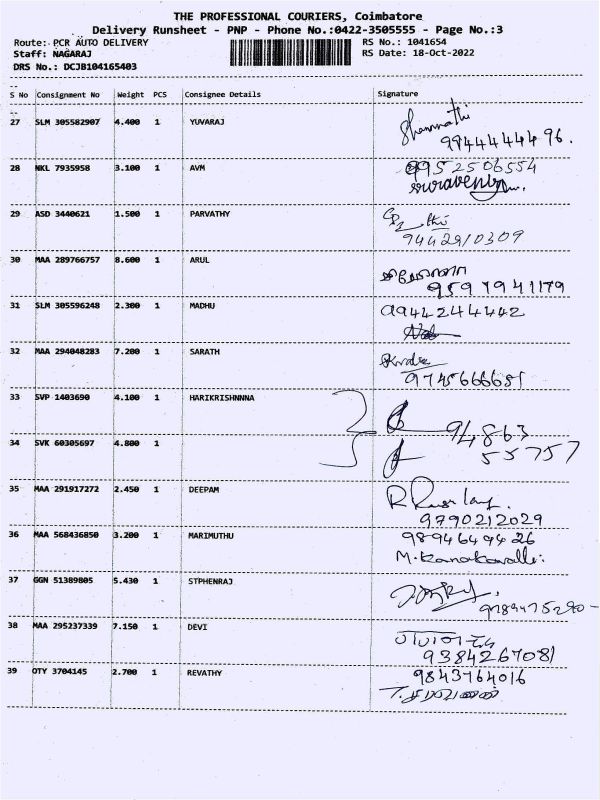 THE PROFESSIONAL COURIERS, Coimbatore
Delivery Runsheet - PNP - Phone No.:0422-3505555 - Page No.:3
Route: PCR AUTO DELIVERY
RS No.: 1041654
Staff: NAGARAJ
RS Date: 18-Oct-2022
DRS No.: DCJB104165403
S No Consignment No Weight PCS Consignee Details Signature
27 SLM 305582907 4.400 1 YUVARAJ
9944444496.
28 NKL 7935958 3.100 1 AVM 9952506554
29 ASD 3440621 1.500 1 PARVATHY
9442910309
30 MAA 289766757 8.600 1 ARUL
9597941179
31 SLM 305596248 2.300 1 MADHU 9944244442
32 MAA 294048283 7.200 1 SARATH
9745666681
33 SVP 1403690 4.100 1 HARIKRISHNNNA
94863
34 SVK 60305697 4.800 1
55757
35 MAA 291917272 2.450 1 DEEPAM
9790212029
36 MAA 568436850 3.200 1 MARIMUTHU 9894649426
M. Kanakavalli.
37 GGN 51389805 5.430 1 STPHENRAJ
9789475290-
38 MAA 295237339 7.150 1 DEVI
9384267081
39 OTY 3704145 2.700 1 REVATHY 9843764016